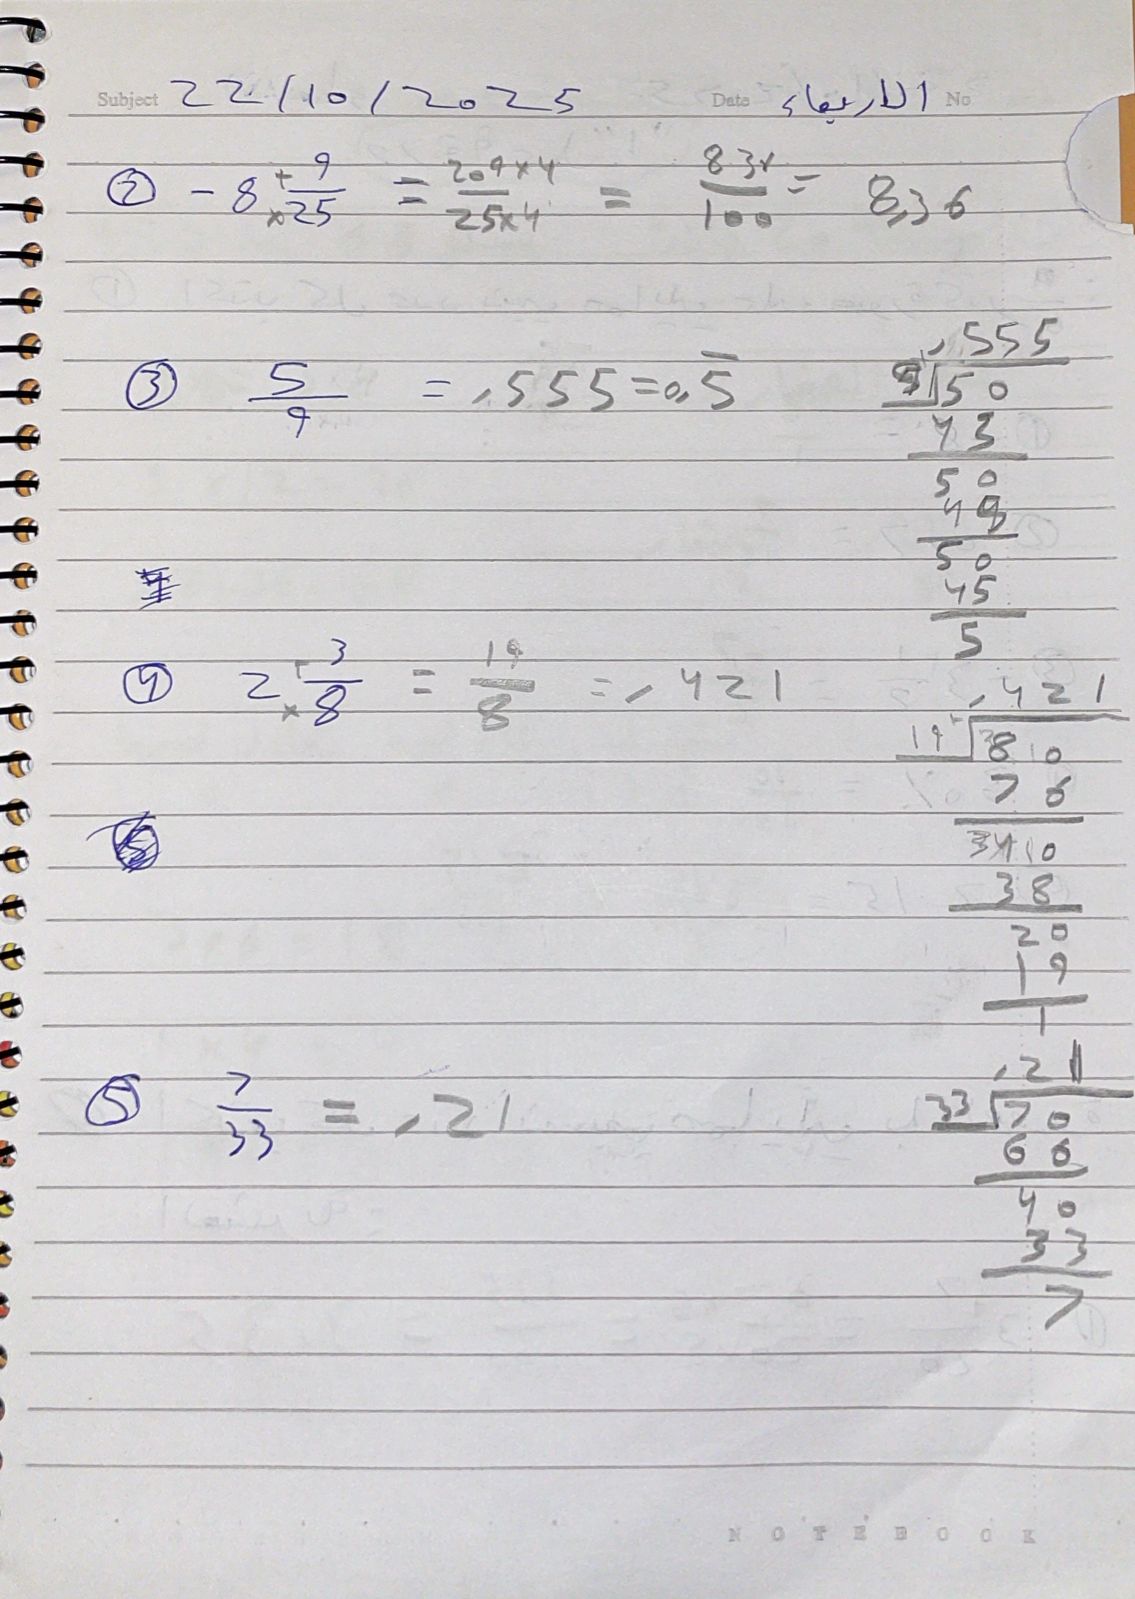 Subject 22/10/2025 Date الاربعاء No
② - 8 + 9/25 × = 209×4/25×4 = 83/100 = 8,36
③ 5/9 = ,555 = 0,5̅
,555
9 50
43
50
48
50
45
5
④ 2 + 3/8 × = 19/8 = , 421
,421
19 810
76
3410
38
20
19
1
⑤ 7/33 = ,21
,21
33 70
66
40
33
7
NOTEBOOK